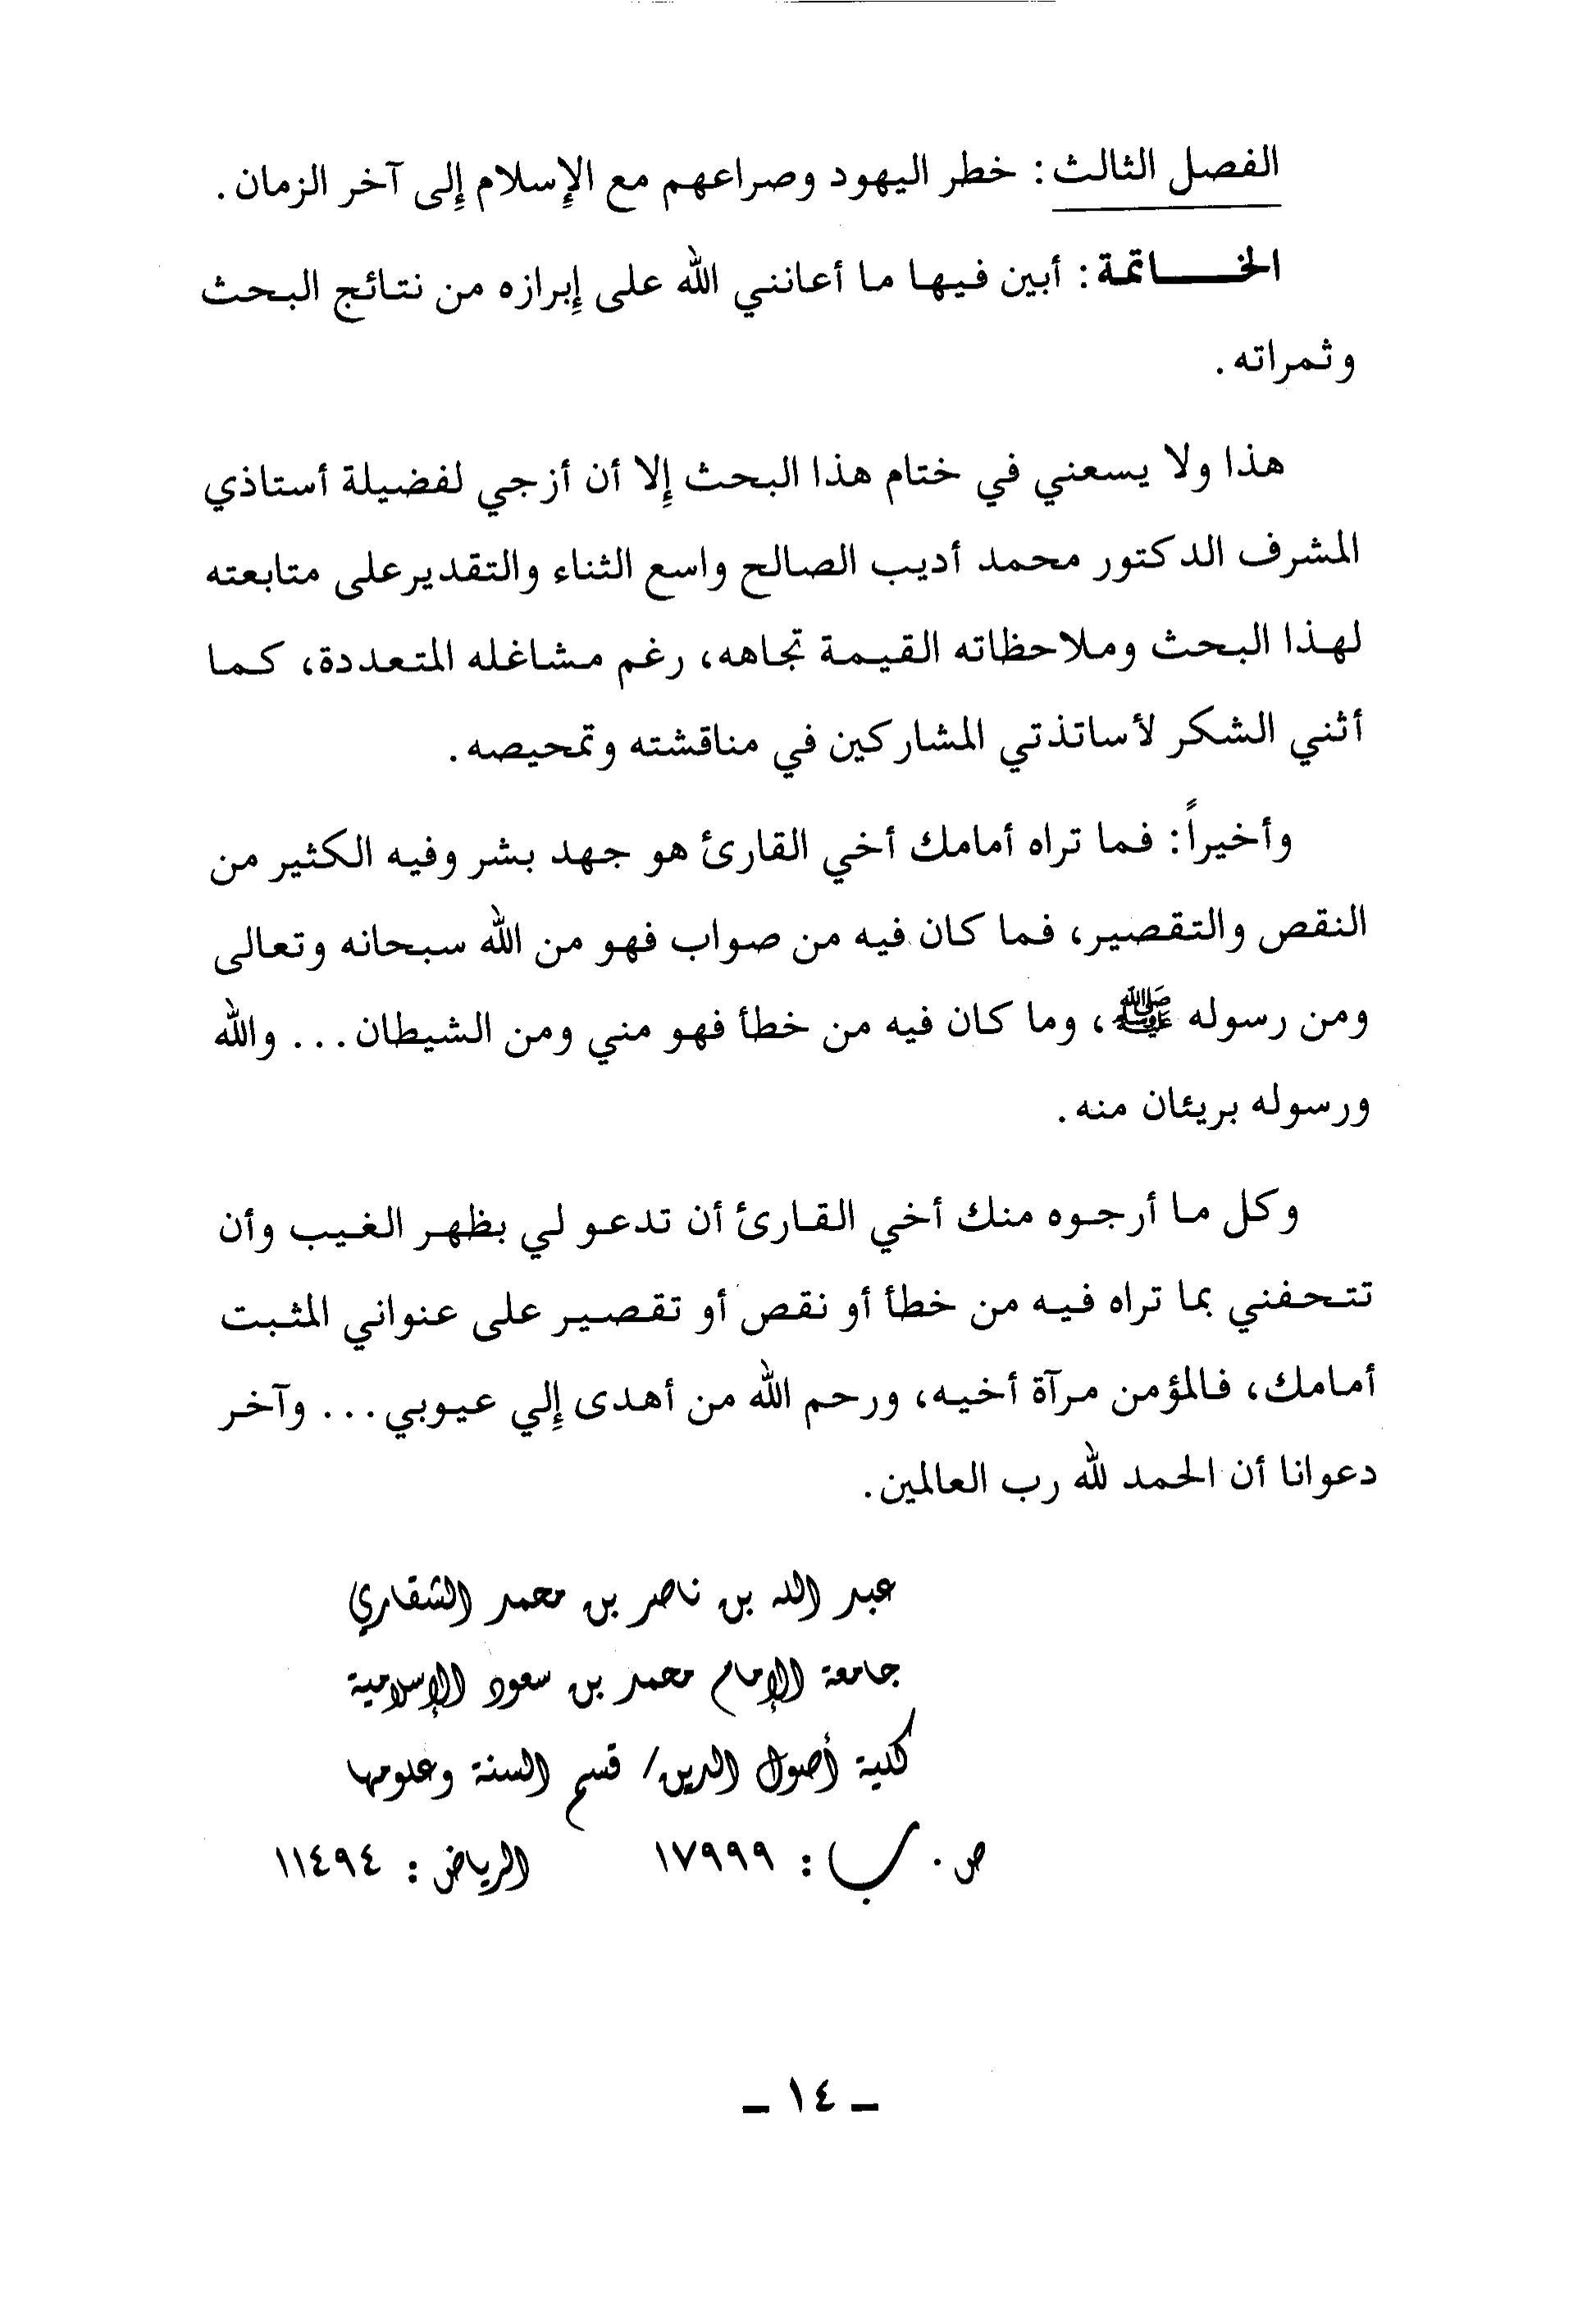 الفصل الثالث: خطر اليهود وصراعهم مع الإسلام إلى آخر الزمان.
الخـــــاتمة: أبين فيها ما أعانني الله على إبرازه من نتائج البحث
وثمراته.
هذا ولا يسعني في ختام هذا البحث إلا أن أزجي لفضيلة أستاذي
المشرف الدكتور محمد أديب الصالح واسع الثناء والتقدير على متابعته
لهذا البحث وملاحظاته القيمة تجاهه، رغم مشاغله المتعددة، كما
أثني الشكر لأساتذتي المشاركين في مناقشته وتمحيصه.
وأخيراً: فما تراه أمامك أخي القارئ هو جهد بشر وفيه الكثير من
النقص والتقصير، فما كان فيه من صواب فهو من الله سبحانه وتعالى
ومن رسوله ﷺ، وما كان فيه من خطأ فهو مني ومن الشيطان... والله
ورسوله بريئان منه.
وكل ما أرجوه منك أخي القارئ أن تدعو لي بظهر الغيب وأن
تتحفني بما تراه فيه من خطأ أو نقص أو تقصير على عنواني المثبت
أمامك، فالمؤمن مرآة أخيه، ورحم الله من أهدى إلي عيوبي... وآخر
دعوانا أن الحمد لله رب العالمين.
عبد الله بن ناصر بن محمد الشقاري
جامعة الإمام محمد بن سعود الإسلامية
كلية أصول الدين/ قسم السنة وعلومها
ص. ب: ١٧٩٩٩ الرياض: ١١٤٩٤
ـ ١٤ ـ